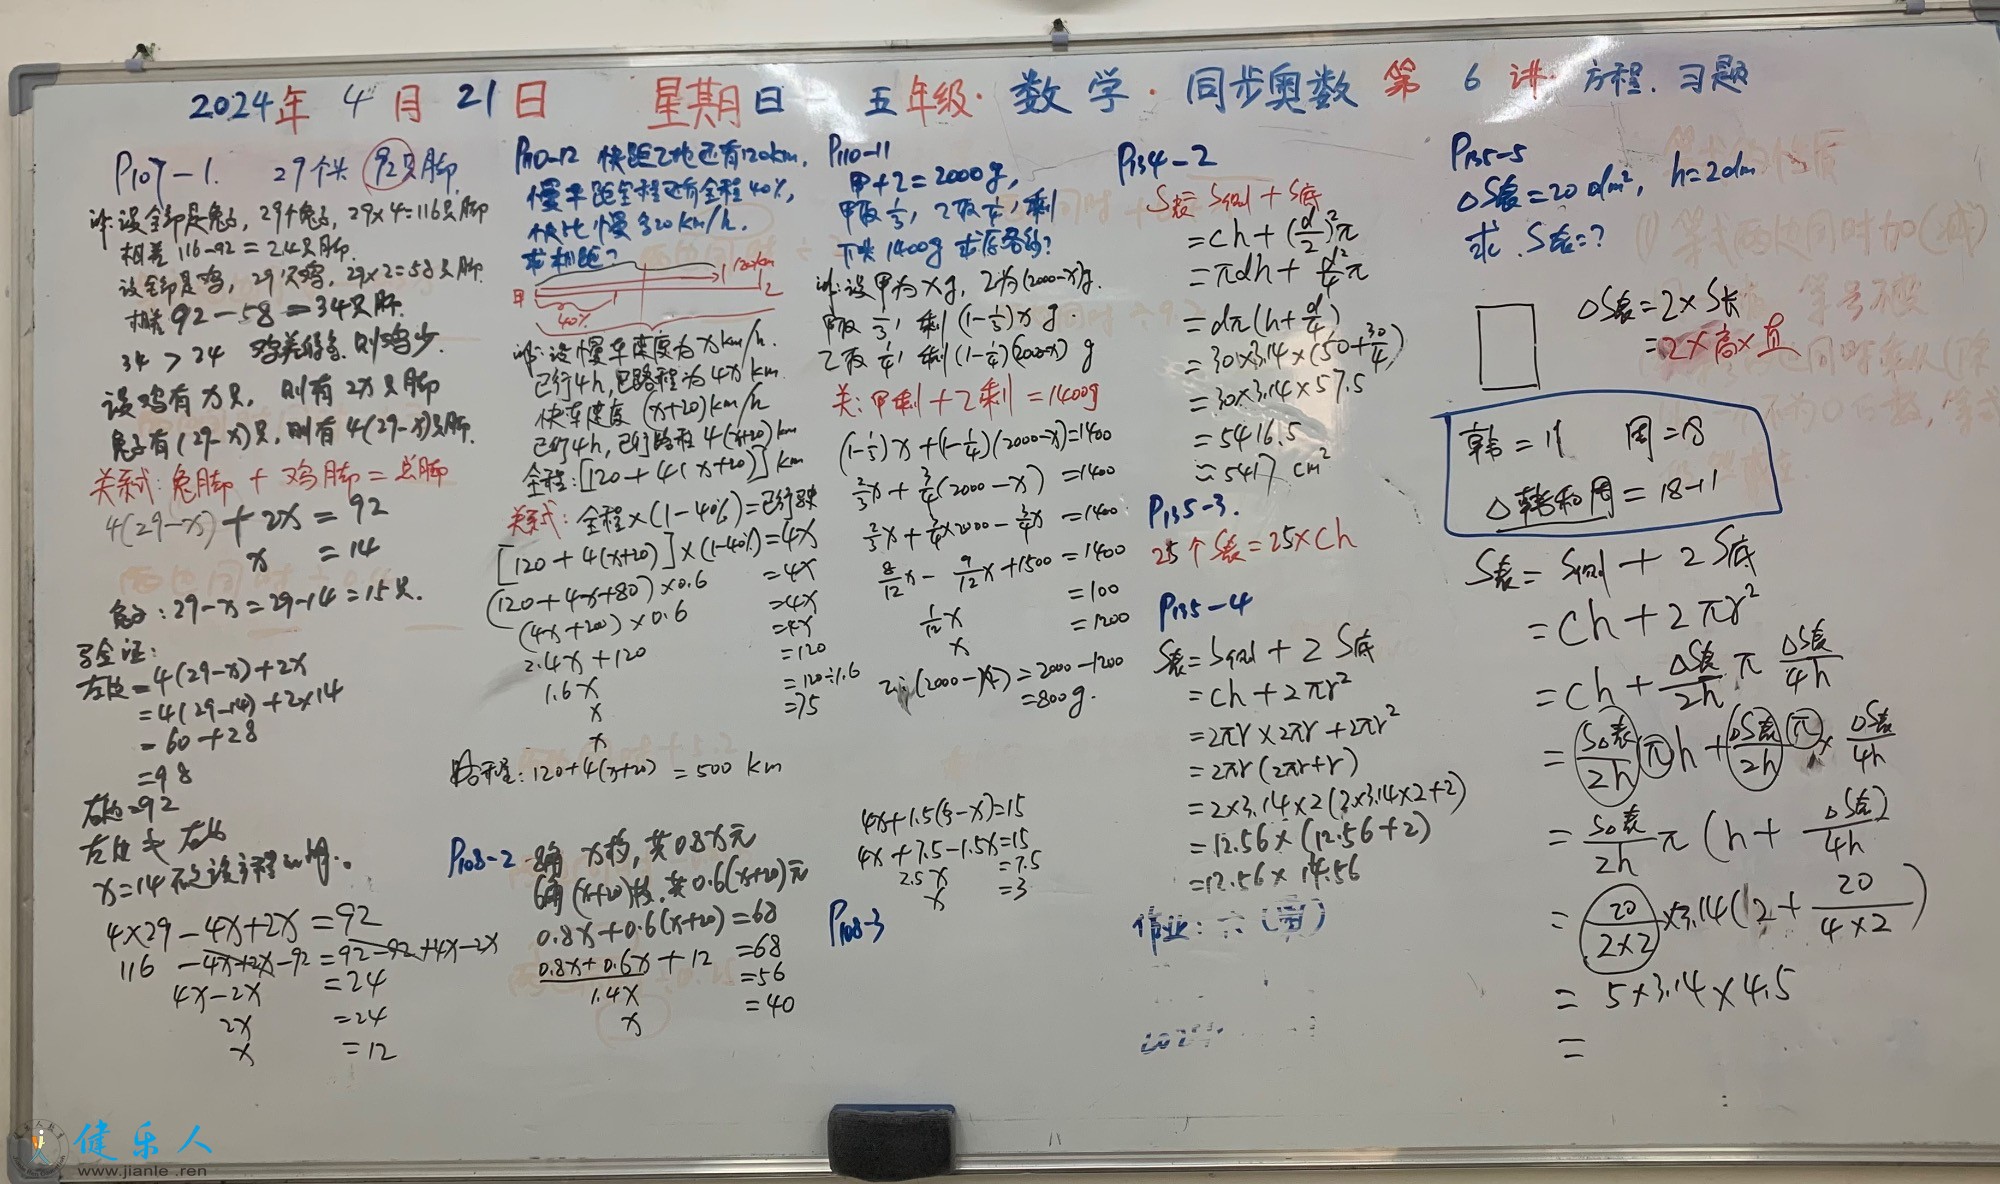 2024年 4月 21日 星期日 五年级·数学·同步奥数 第 6 讲·方程.习题
P107-1. 29个头 92只脚.
设全部是兔子, 29个兔子, 29×4=116只脚
相差 116-92=24只脚.
设全部是鸡, 29只鸡, 29×2=58只脚.
相差 92-58=34只脚.
34 > 24
设鸡有x只, 则有 2x只脚
兔子有(29-x)只, 则有4(29-x)只脚.
关系式: 兔脚 + 鸡脚 = 总脚
4(29-x) + 2x = 92
x = 14
兔子: 29-x=29-14=15只.
验证:
左边=4(29-x)+2x
=4(29-14)+2×14
=60+28
=98
右边=92
左边 右边
x=14不是该方程的解.
4×29-4x+2x=92
116-4x+2x-92=92-92+4x-2x
4x-2x =24
2x =24
x =12
P110-12 快距乙地还有120km,
慢车距全程还有全程40%,
快比慢多20km/h.
求相距?
120km
甲 乙
40%
设慢车速度为xkm/h.
已行4h, 已路程为4xkm.
快车速度 (x+20)km/h
已行4h, 已行路程4(x+20)km
全程:[120+4(x+20)]km
关系式: 全程×(1-40%)=已行路程
[120+4(x+20)]×(1-40%)=4x
(120+4x+80)×0.6 =4x
(4x+200)×0.6 =4x
2.4x+120 =4x
1.6x =120
x =120÷1.6
x =75
路程: 120+4(x+20) = 500 km
P108-2 8角 x枚, 共0.8x元
6角(x+20)枚, 共0.6(x+20)元
0.8x+0.6(x+20)=68
0.8x+0.6x+12 =68
1.4x =56
x =40
P110-11
甲+乙=2000g,
甲取1/3, 乙取1/4, 剩
下共1400g 求原各多少?
设甲为xg, 乙为(2000-x)g.
甲取1/3, 剩(1-1/3)x g.
乙取1/4, 剩(1-1/4)(2000-x) g
关: 甲剩+乙剩=1400g
(1-1/3)x+(1-1/4)(2000-x)=1400
2/3x+3/4(2000-x) =1400
2/3x+3/4×2000-3/4x =1400
8/12x-9/12x+1500=1400
1/12x =100
x =1200
乙:(2000-x)=2000-1200
=800g.
4x+1.5(5-x)=15
4x+7.5-1.5x=15
2.5x =7.5
x =3
P108-3
P134-2
S表=S侧+S底
=Ch+(d/2)²π
=πdh+d²/4π
=dπ(h+d/4)
=30×3.14×(50+30/4)
=30×3.14×57.5
=5416.5
≈5417 cm²
P135-3.
25个S表=25×Ch
P135-4
S表=S侧+2S底
=Ch+2πr²
=2πr×2πr+2πr²
=2πr(2πr+r)
=2×3.14×2(2×3.14×2+2)
=12.56×(12.56+2)
=12.56×14.56
作业: 六
P135-5
△S表=20dm², h=2dm
求 S表=?
△S表=2×S长
=2×高×直
韩=11 周=18
△韩和周=18-11
S表=S侧+2S底
=Ch+2πr²
=Ch+△S表/2h π △S表/4h
=S△表/2h π h+△S表/2h π×△S表/4h
=S△表/2h π(h+△S表/4h)
=20/2×2×3.14(2+20/4×2)
=5×3.14×4.5
=
健乐人
www.jianle.ren